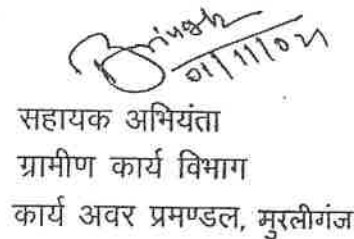 01/11/021
सहायक अभियंता
ग्रामीण कार्य विभाग
कार्य अवर प्रमण्डल, मुरलीगंज